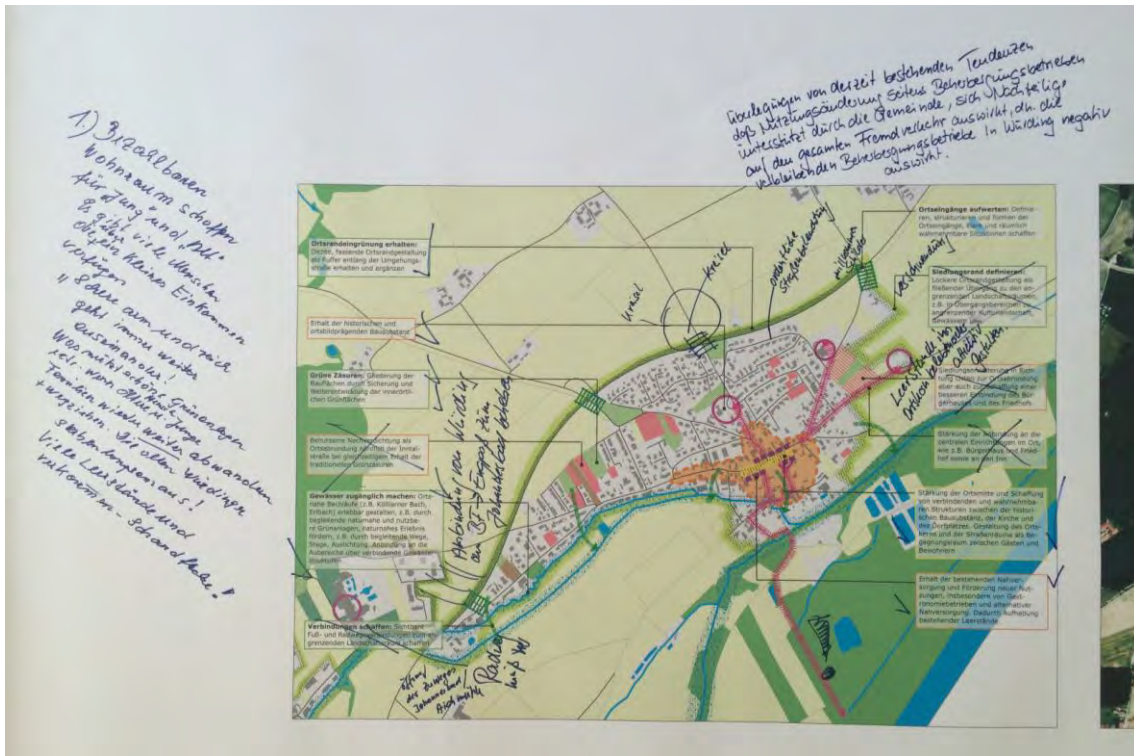 1.) Bezahlbaren
Wohnraum schaffen
für Jung und "Alt".
Es gibt viele Menschen
die über kleines Einkommen
verfügen
" Schere arm und reich
geht immer weiter
auseinander.
Was nützt schöne Grünanlagen
etc. wenn offene Junge
Familien wieder weiter abwandern
+ wegziehn. Die alten Würdinger
sterben langsam aus!
Viele Leerstände und
verkommen - Schandflecke!"
Überlegungen von derzeit bestehenden Tendenzen
daß Nutzungsänderung seitens Beherbergungsbetrieben
unterstützt durch die Gemeinde, sich Nachteilig
auf den gesamten Fremdverkehr auswirkt, die
verbleibenden Beherbergungsbetriebe in Würding negativ
auswirkt.
Ortsrandeingrünung erhalten:
Dichte, fassende Ortsrandgestaltung
als Puffer entlang der Umgehungs-
straße erhalten und ergänzen
Erhalt der historischen und
ortsbildprägenden Bausubstanz
Grüne Zäsuren: Gliederung der
Bauflächen durch Sicherung und
Weiterentwicklung der innerört-
lichen Grünflächen
Behutsame Nachverdichtung als
Ortsabrundung nördlich der Inntal-
straße bei gleichzeitigem Erhalt der
traditionellen Grünzäsuren
Gewässer zugänglich machen: Orts-
nahe Bachläufe (z.B. Kößlarner Bach,
Erlbach) erlebbar gestalten, z.B. durch
begleitende naturnahe und nutzba-
re Grünanlagen, naturnahes Erlebnis
fördern, z.B. durch begleitende Wege,
Stege, Auslichtung. Anbindung an die
Aubereiche über verbindende Gewässer-
strukturen
Verbindungen schaffen:
Fuß- und Radwegeverbindungen zum an-
grenzenden Landschaftsraum schaffen
Kreisel
Kreisel
ordentliche
Straßenbeleuchtung
willkommen
Schilder
Ortseingänge aufwerten: Definie-
ren, strukturieren und formen der
Ortseingänge, klare und räumlich
wahrnehmbare Situationen schaffen
Siedlungsrand definieren:
Lockere Ortsrandgestaltung als
fließender Übergang zu den an-
grenzenden Landschaftsräumen,
z.B. in Übergangsbereichen zu
angrenzender Kulturlandschaft,
Gewässern usw.
Leerstände im
Ortskern
attraktiv
gestalten
besseren Anbindung des Bür-
gerhauses und des Friedhofs
Stärkung der Anbindung an die
zentralen Einrichtungen im Ort,
wie z.B. Bürgerhaus und Fried-
hof sowie an den Inn
Stärkung der Ortsmitte und Schaffung
von verbindenden und wahrnehmba-
ren Strukturen zwischen der histori-
schen Bausubstanz, der Kirche und
des Dorfplatzes. Gestaltung des Orts-
kerns und der Straßenräume als Be-
gegnungsraum zwischen Gästen und
Bewohnern
Erhalt der bestehenden Nahver-
sorgung und Förderung neuer Nut-
zungen, insbesondere von Gast-
ronomiebetrieben und alternativer
Nahversorgung. Dadurch Aufhebung
bestehender Leerstände
Radweg
muß her